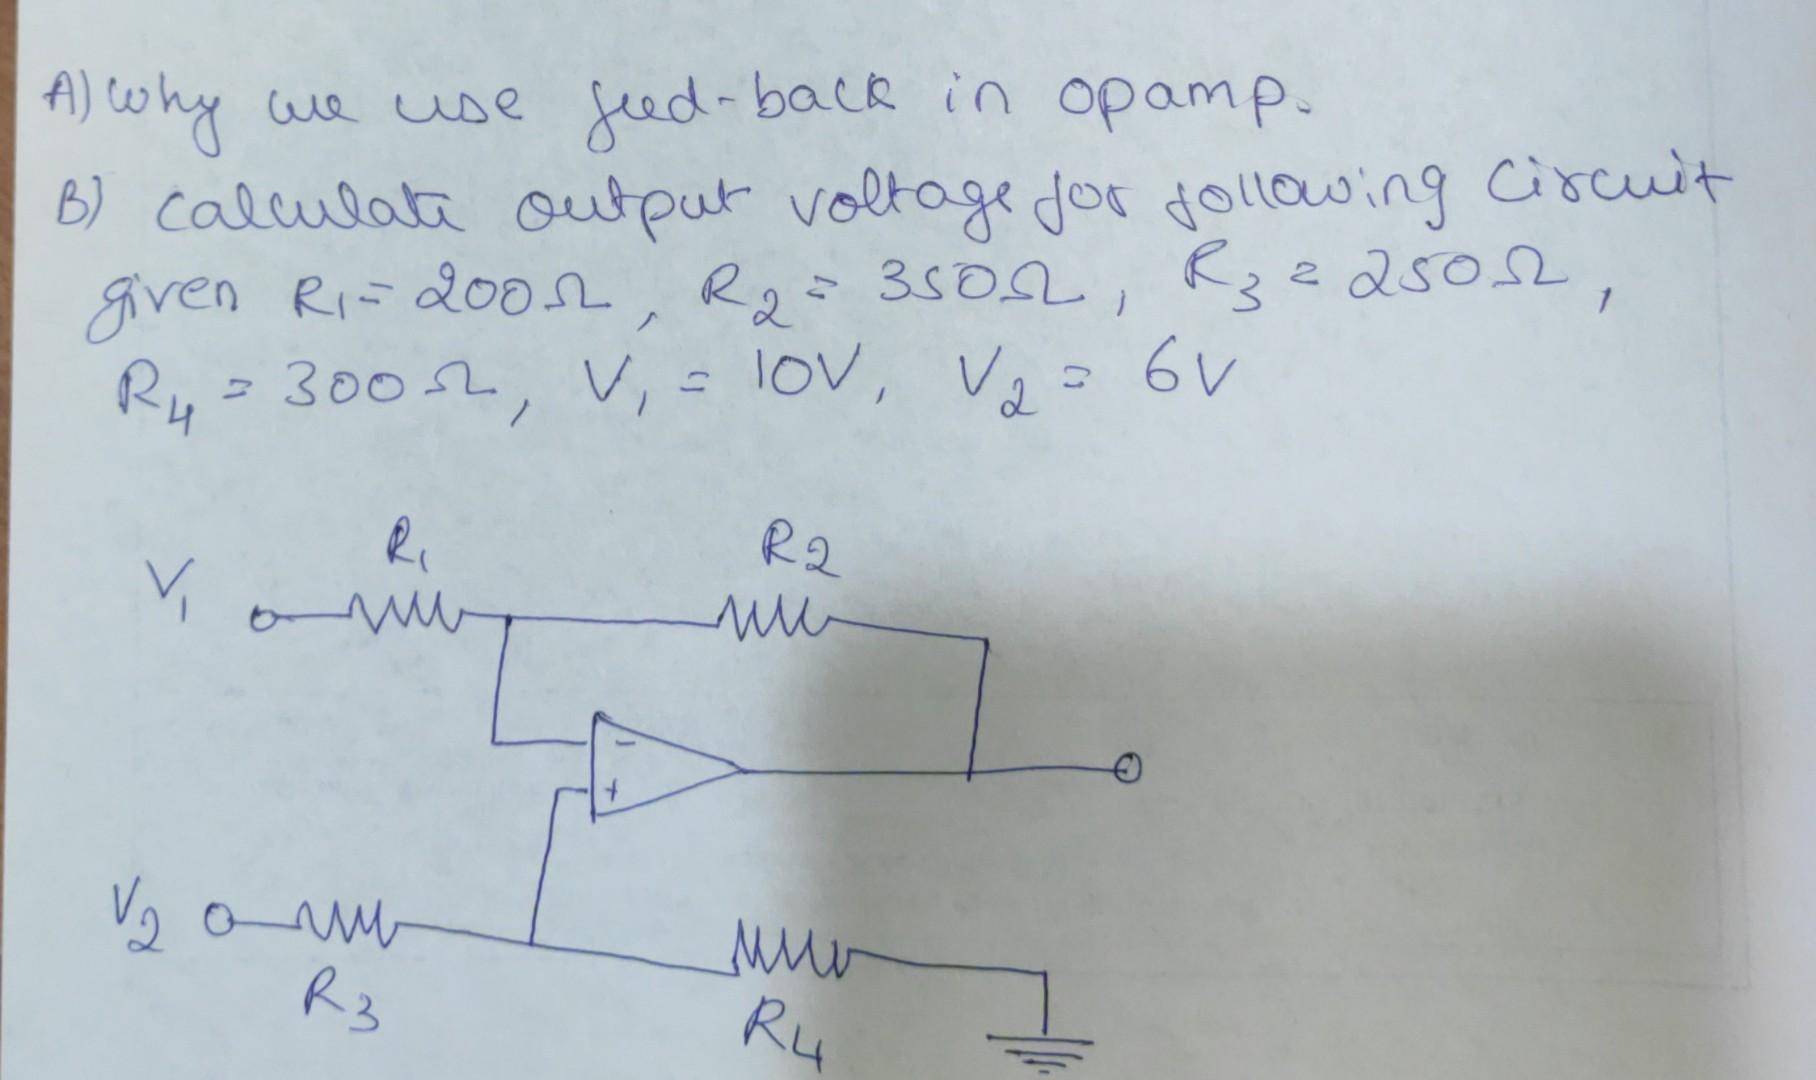 A) Why we use feed-back in opamp.
B) calculate output voltage for following circuit
given R₁ = 200Ω, R₂ = 350Ω, R₃ = 250Ω,
R₄ = 300Ω, V₁ = 10V, V₂ = 6V
R₁ R2
V₁
-
+
V₂
R3
R4